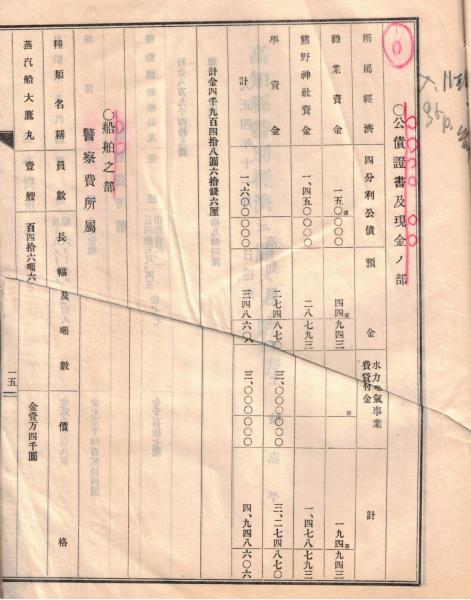 ○公債證書及現金ノ部
所屬經濟 四分利公債 預金 水力電氣事業費貸付金 計
勸業資金 一五〇〇〇〇 四四九四三 圓 一九四九四三
熊野神社資金 一、四五〇〇〇〇 二八七九三 一、四七八七九三
學資金 二七四八七〇 三、〇〇〇〇〇〇 三、二七四八七〇
計 一、六〇〇〇〇〇 三四八六〇六 三、〇〇〇〇〇〇 四、九四八六〇六
計金四千九百四拾八圓六拾錢六厘
○船舶之部
警察費所屬
種類名稱 員數 長幅及噸數 價格
蒸汽船大鷹丸 壹艘 百四拾六噸六 金壹万四千圓
一五